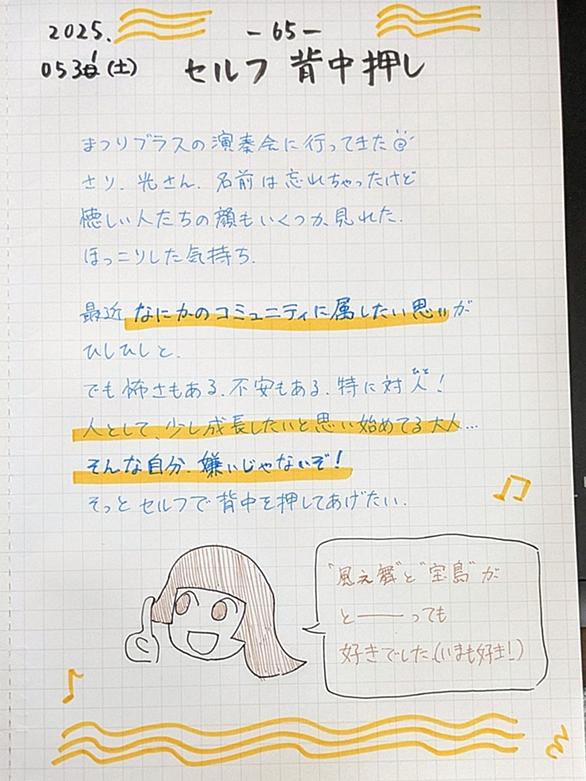 2025.
-65-
0531(土)
セルフ 背中押し
まつりブラスの演奏会に行ってきた
さり、光さん、名前は忘れちゃったけど
懐しい人たちの顔もいくつか見れた.
ほっこりした気持ち.
最近 なにかのコミュニティに属したい思いが
ひしひしと.
でも怖さもある.不安もある.特に対人!
ひと
人として、少し成長したいと思い始めてる大人...
そんな自分、嫌いじゃないぞ!
そっと セルフで背中を押してあげたい.
"風之舞"と"宝島"が
と――っても
好きでした.(いまも好き!)